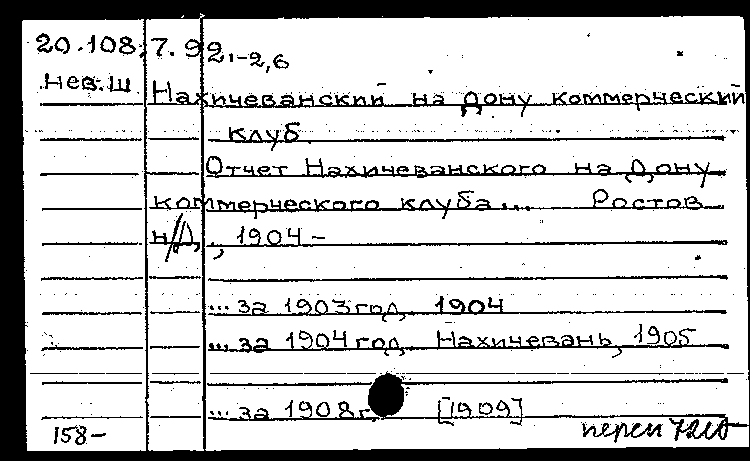 20.108.7.92.-2,6
нев.ш
Нахичеванский на Дону коммерческий
клуб.
Отчет Нахичеванского на Дону
коммерческого клуба... Ростов
н/Д., 1904-
... за 1903 год, 1904
... за 1904 год, Нахичевань, 1905
... за 1908 г. [1909]
158-